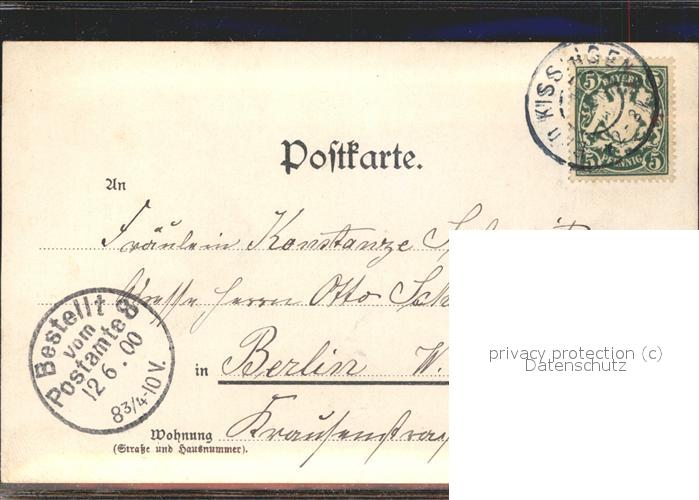 KISSINGEN
5 BAYERN 5
5 PFENNIG 5
Postkarte.
An
Fräulein Konstanze
Adresse Herrn Otto
Bestellt
vom
Postamte 8
12 6.00
8 3/4-10 V.
in Berlin W.
Wohnung
(Straße und Hausnummer).
privacy protection (c)
Datenschutz